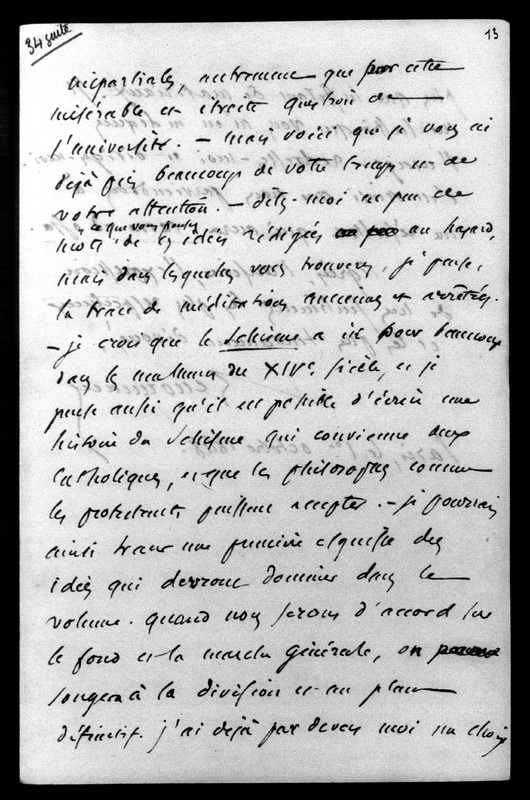 34 suite
13
impartiales, autrement que pour cette
misérable et étroite question de
l'université. – mais voici que je vous ai
déjà pris beaucoup de votre temps et de
votre attention. – dites-moi un peu de
ce que vous pensez
mots de ces idées rédigées au hasard,
mais dans lesquelles vous trouverez, je pense,
la trace de méditations anciennes et arrêtées.
– je crois que le Schisme a été pour beaucoup
dans les malheurs du XIVe siècle, et je
pense aussi qu'il est possible d'écrire une
histoire du Schisme qui convienne aux
Catholiques, et que les philosophes comme
les protestants puissent accepter. – je pourrais
ainsi tracer une première esquisse des
idées qui devront dominer dans le
volume. quand nous serons d'accord sur
le fond et la marche générale, on
songera à la division et au plan
définitif. j'ai déjà par devers moi un choix